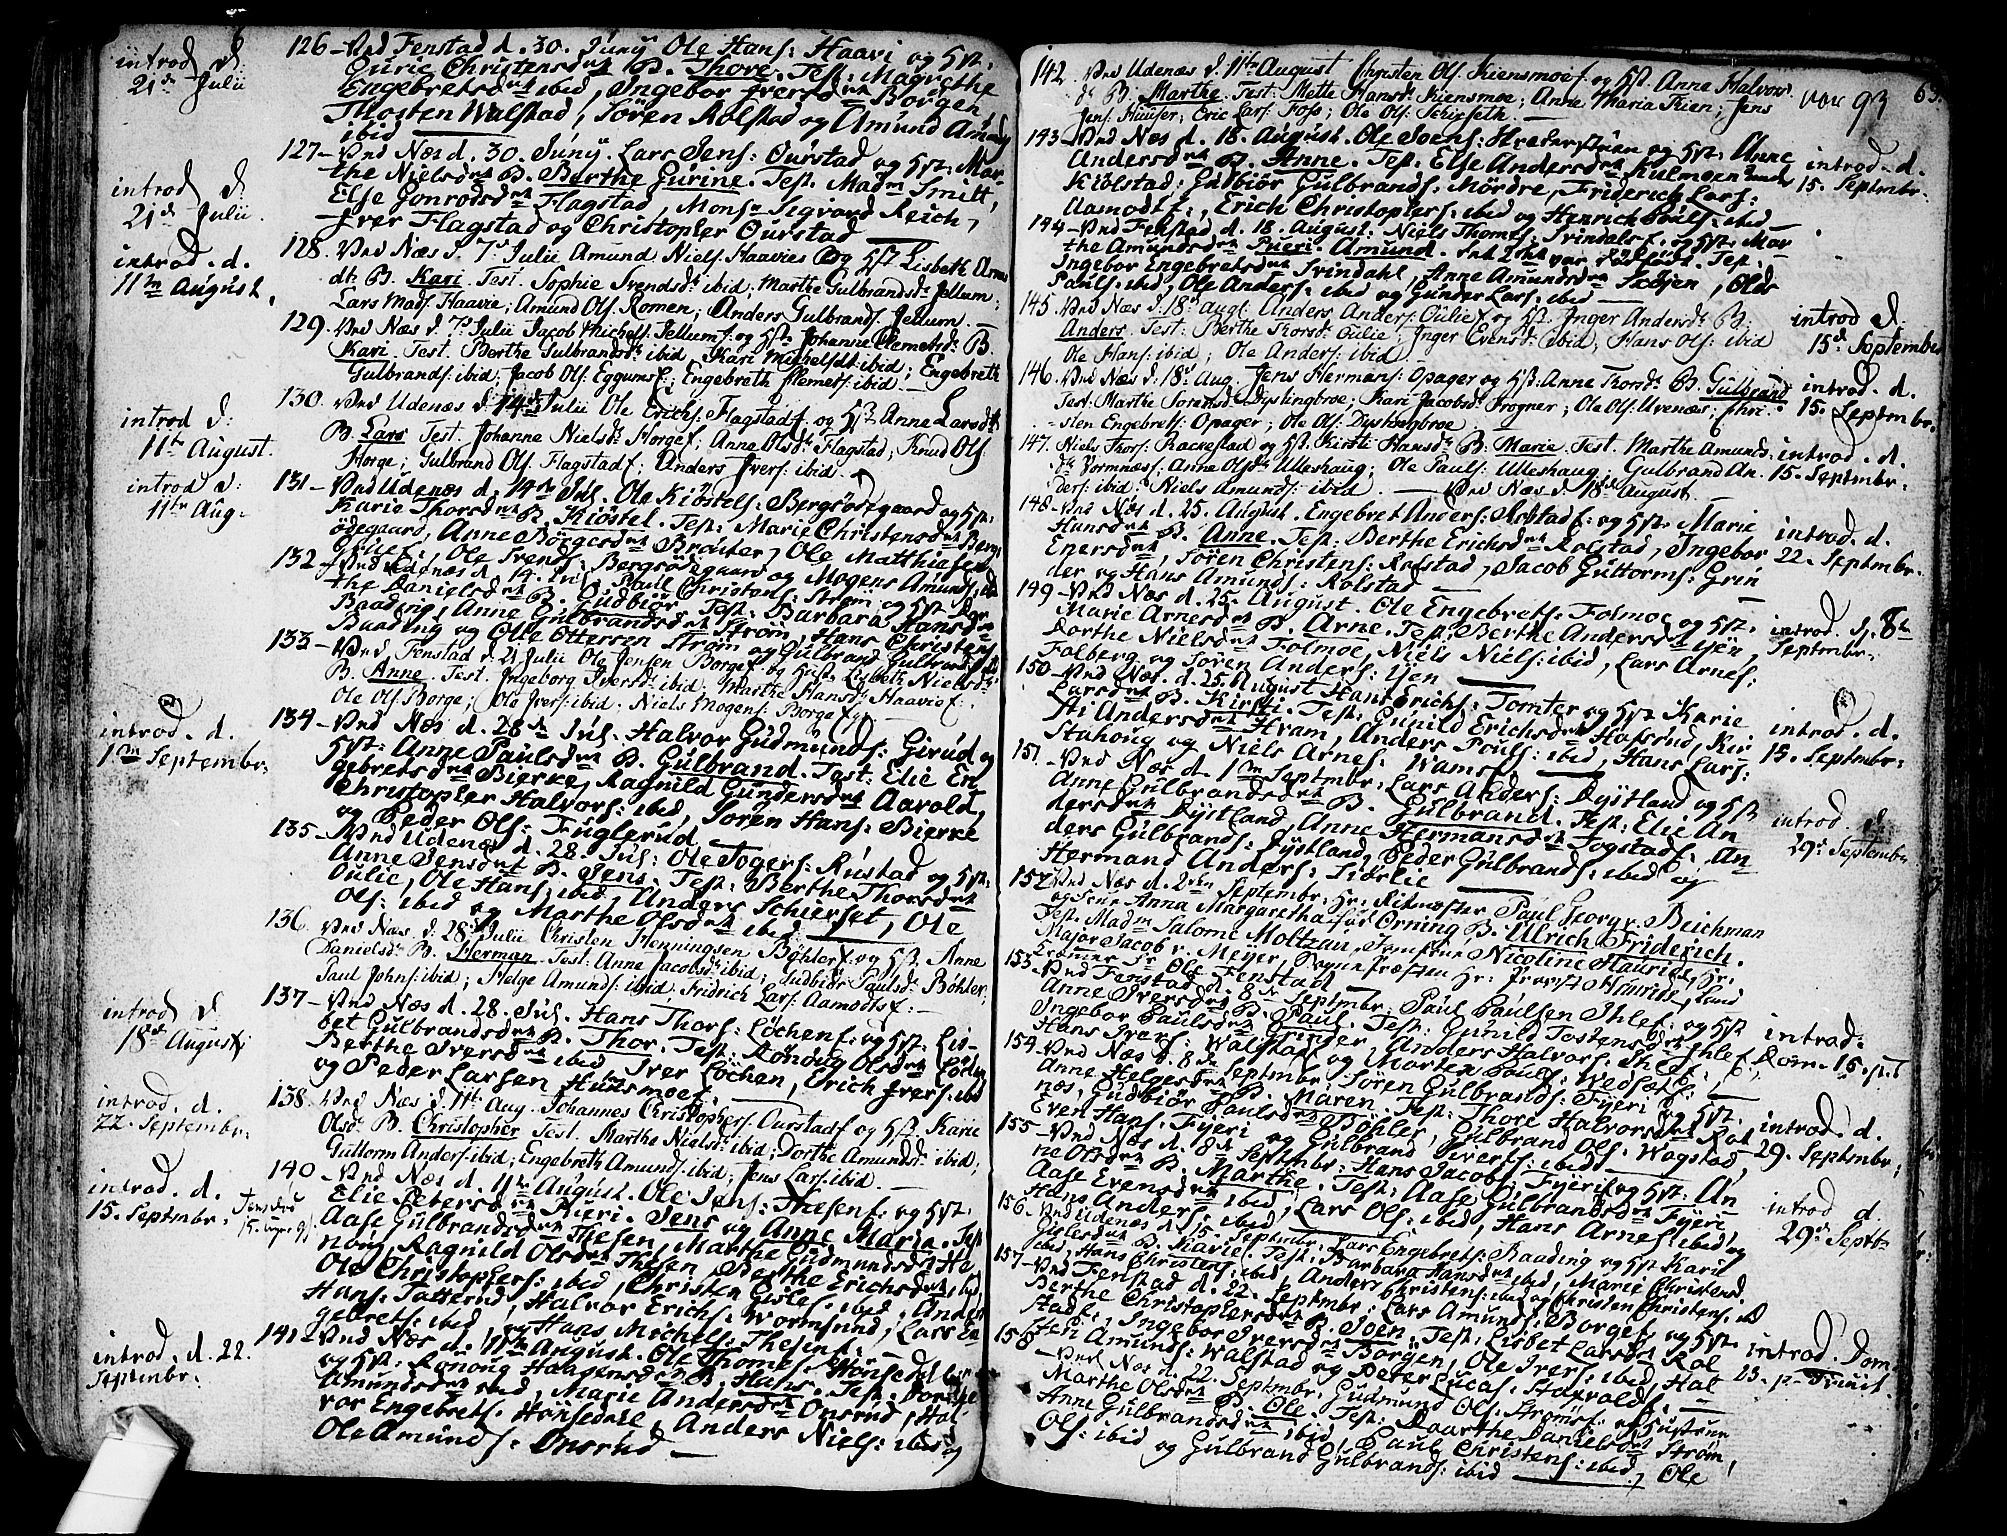 introd d.
21de Julii
126 – Ved Fenstad d. 30. Juny Ole Hans: Haavi og Hst:
Gurie Christensdtr B. Thore. Test: Magrethe
Engebretsdtr ibid, Ingebor Iversdtr Borgen
Thosten Walstad, Sören Rolstad og Amund
ibid
introd d.
21de Julii.
127 – Ved Næs d. 30. Juny. Lars Jens: Ourstad og Hst: Mar-
the Nielsdtr B. Berthe Gurine. Test. Madm Smitt,
Else Gonrodsdtr Flagstad, Monsr Sigvard Reich,
Iver Flagstad og Christopher Ourstad
introd. d.
11te August.
128. Ved Næs d. 7de Julii Amund Niels: Haavies og Hst Lisbeth
dtr B. Kari. Test. Sophie Svendsdr ibid; Marthe Gulbrandsdr Jellum;
Lars Mads: Haavie; Amund Ols: Romen; Anders Gulbrands: Jellum. –
129. Ved Næs d. 7de Julii Jacob Michels: Jellum og Hst: Johanne Clemetsdr B.
Kari. Test. Berthe Gulbrandsdr ibid, Kari Michelsdtr ibid; Engebreth
Gulbrands: ibid; Jacob Ols: Eggums; Engebreth Clemets: ibid.
introd d:
11te August.
130. Ved Udenæs d. 14de Julii Ole Erichs: Flagstads og Hst Anne Larsdtr
B. Lars Test. Johanne Nielsdr Horge; Anne Olsdr Flagstad; Knud Ols:
Horge; Gulbrand Ols: Flagstad; Anders Ivers: ibid.
introd d:
11te Aug:
131 – Ved Udenæs d. 14de Jul: Ole Kiöstels: Bergsödegaard og Hst:
Karie Thorsdtr B. Kiöstel. Test: Marie Christensdtr Bergs
ödegaard, Anne Börgesdtr Brouter, Ole Matthiesen
Ole Svends: Bergsödegaard og Mogens Amunds:
132 Ved Udenæs d. 14. Jul: Poul Christens: Ström og Hst: Mar-
the Danielsdtr B. Gudbiör Test: Barbara Hansdtr
Baading, Anne Gulbrandsdtr Ström, Hans Christens:
Baading og Ole Ottersen Ström og Gulbrand Gulbrands:
133 – Ved Fenstad d. 21 Julii Ole Jensen Borge og Hst Lisbeth Nielsdr
B. Anne. Test. Ingeborg Iversdr ibid. Marthe Hansdr Haavie;
Ole Ols: Borge; Ole Ivers: ibid. Niels Mogens: Borge.
introd. d.
1ste Septembr:
134 – Ved Næs d. 28de Jul: Halvor Gudmunds: Girud og
Hst: Anne Paulsdtr B. Gulbrand. Test: Elie En
gebretsdtr Bierke, Ragnild Gundersdtr Aarold,
Christopher Halvors: ibid, Sören Hans: Bierke
og Peder Ols: Fuglerud
135 – Ved Udenæs d. 28. Jul: Ole Togers: Rustad og Hst:
Anne Jensdtr B. Jens. Test: Berthe Thorsdtr
Oulie, Ole Hans: ibid, Anders Schierset, Ole
Ols: ibid og Marthe Olsdtr ibid
136. Ved Næs d. 28de Julii Christen Henningsen Böhler og Hst. Anne
Danielsdr B. Herman Test: Anne Jacobsdr ibid; Gudbiör Paulsdr Böhler;
Paul Johns: ibid; Helge Amunds: ibid, Fridrich Lars: Aamodts: –
introd d.
18de August.
137 – Ved Næs d. 28. Jul: Hans Thors: Löchen og Hst: Lis-
bet Gulbrandsdtr B. Thor. Test: Rönoug Olsdtr Löchen
Berthe Iversdtr ibid Iver Löchen, Erich Ivers: ibid
og Peder Larsen Huusmoe.
introd. d.
22. Septembr:
138. Ved Næs d. 11te Aug. Johannes Christophers: Ourstad og Hst. Karie
Olsdr B. Christopher Test. Marthe Nielsdr ibid; Dorthe Amundsdr ibid;
Guttorm Anders: ibid; Engebreth Amunds: ibid; Jens Lars: ibid.
introd. d.
15. Septembr:
140 Ved Næs d. 11te August. Ole Jens: Thesen og Hst.
Elie Pedersdtr Pueri. Jens og Anne Maria. Test
Aase Gulbrandsdtr Thesen, Marthe Gudmundsdr Ha
noug, Ragnild Olsdtr Thesen, Berthe Erichsdtr ibid,
Ole Christophers: ibid, Christen Eisle: ibid, Anders
Hans: Tatterud, Halvor Erichs: Wormsund, Lars En
gebrets: ibid, og Hans Michels: Thesen.
introd. d. 22.
Septembr:
141 – Ved Næs d. 11te August. Ole Thomes: Hönsedal
og Hst: Rönoug Haagensdtr B. Hans. Test. Dorthe
Amundsdtr ibid, Marie Andersdtr Onsrud, Hal-
vor Engebrets. Hönsedal, Anders Niels: ibid og
Ole Amunds: Onsrud –
142. Ved Udenæs d. 11te August Christen Ols: Kiensmoe og Hst Anne Halvors
dr B. Marthe. Test. Mette Hansdr Kiensmoe; Anne Maria Kien; Jens
Jens: Huuser; Eric Lars: Foss; Ole Ols: Schiseth. –
vox 93
63.
143 – Ved Næs d. 18. August. Ole Joens: Hrederstuen og Hst: Anne
Andersdtr B. Anne. Test. Else Andersdtr Kulmoen
Kiölstad; Gudbiör Gulbrands: Mördre, Friderich Lars:
Aamodt, Erich Christophers: ibid og Henrich Pouls: ibid
introd. d.
15. Septembr.
144 – Ved Fenstad d. 18. August. Niels Thomes: Svindal og Hst: Mar-
the Amundsdtr Pueri. Amund. Test.
Ingebor Engebretsdtr Svindahl, Anne Amundsdtr
Pauls: ibid, Ole Anders: ibid og Gunder Lars: ibid
145. Ved Næs d. 18de Augt. Anders Anders: Oulie og Hst. Inger Andersdr B.
Anders. Test: Berthe Thorsdr Oulie; Inger Evensdr ibid; Hans Ols: ibid
Ole Hans: ibid; Ole Anders: ibid
introd d.
15de September
146. Ved Næs d. 18de Aug. Jens Hermans: Opager og Hst: Anne Thorsdr B. Gulbrand
Test: Marthe Dystingbroe; Kari Jacobsdr Frogner; Ole Ols: Uvenæs; Chri-
sten Engebrets: Opager; Ole Ols: Dystingbroe
introd. d.
15. Septembr.
147. Niels Thors: Rackestad og Hst. Kirsti Hansdr B. Marie. Test. Marthe Amunds:
dr Vormnes; Anne Olsdr Ulleshaug; Ole Pauls: Ulleshaug; Gulbrand An.
ders: ibid Niels Amunds: ibid. – Ved Næs d. 18de August.
introd. d.
15. Septembr:
148 – Ved Næs d. 25. August. Engebret Anders: Rolstad og Hst. Marie
Hansdtr B. Anne. Test. Berthe Erichsdtr Rolstad, Ingebor
Enersdtr, Sören Christens: Rolstad, Jacob Guttorms: Grin
der og Hans Amunds: Rolstad –
introd. d.
22. Septembr.
149 – Ved Næs d. 25. August. Ole Engebrets: Folmoe og Hst.
Marie Arnesdtr B. Arne. Test: Berthe Andersdtr Hjen,
Dorthe Nielsdtr Folmoe, Niels Niels: ibid, Lars Arnes:
Folberg og Sören Anders: Hjen
introd. d. 8te
Septembr:
150 – Ved Næs. d. 25. August Hans Erichs: Tomter og Hst Karie
Larsdtr B. Kirsti. Test. Gunild Erichsdtr Hofsrud, Kir
sti Andersdtr Hvam, Anders Pouls: ibid, Hans Lars:
Stahoug og Niels Arnes: Wams
introd. d.
15. Septembr:
151 – Ved Næs d. 1ste Septembr: Lars Anders: Dystland og Hst
Anne Gulbrandsdtr B. Gulbrand. Test: Elie An
dersdtr Dystland, Anne Hermansdtr Fogstad, An
ders Gulbrands: Dystland, Peder Gulbrands: ibid og
Hermand Anders: Fierlie
introd. d.
29de September
152 Ved Næs d. 2den Septembr: Hr. Ritmester Paul Georg v. Beichman
og Frue Anna Margaretha för Orning B. Ulrich Friderich.
Test: Madm Salome Moltzau, Jomfrue Nicoline Maurise, Hr.
Major Jacob v. Meyer, Sogne Præsten Hr. Provst Maurise, Lund
Cramer Sr Ole Fenstad
153 – Ved Fenstad d. 8de Septembr: Paul Paulsen Ihle og Hst
Anne Iversdtr B. Paul. Test: Gunild Tostensdtr Ihle
Ingebor Paulsdtr Grinder, Anders Halvors: Ihle
Hans Ivers: Walstad og Morten Pouls: Wedset.
introd.
Dom. 15. p. T
154 – Ved Næs d. 8de Septembr: Sören Gulbrands: Fyeri og Hst:
Anne Helgesdtr B. Maren. Test: Thore Halvorsdtr Rot
næs, Gudbiör Paulsdtr Böhler, Gulbrand Ols: Wagstad,
Even Hans: Fyeri og Gulbrand Iverts: ibid
introd. d.
29. Septembr:
155 – Ved Næs d. 8de Septembr: Hans Jacobs: Fyeri og Hst: An
ne Olsdtr B. Marthe. Test: Aase Gulbrandsdtr Fyeri
Aase Evensdtr ibid, Lars Ols: ibid, Hans Arnes: ibid og
Hans Anders: ibid
introd d.
29de Septbr
156 – Ved Udenæs d. 15. Septembr: Lars Engebrets: Baading og Hst Karie
Gislesdtr B. Marie. Test: Barbara Hansdtr ibid, Marie Christensd.
ibid, Hans Christens: ibid, Anders Christens: ibid og Christen Christens: ibid
157 – Ved Fenstad d. 22. Septembr: Lars Amunds: Borge og Hst.
Berthe Christophersdtr B. Joen. Test: Lisbet Larsdtr Rol
stad, Ingebor Iversdtr Borgen, Ole Ivers: ibid, Hal
sten Amunds: Walstad og Peter Lucas: Haxrold.
introd. Dom.
23. p. Trinit.
158 – Ved Næs d. 22. Septembr: Gudmund Ols: Ström og Hustrue
Marthe Olsdtr B. Ole. Test: Daarthe Danielsdtr Ström,
Anne Gulbrandsdtr ibid, Paul Christens: ibid, Ole
Ols: ibid og Gulbrand Gulbrands: ibid